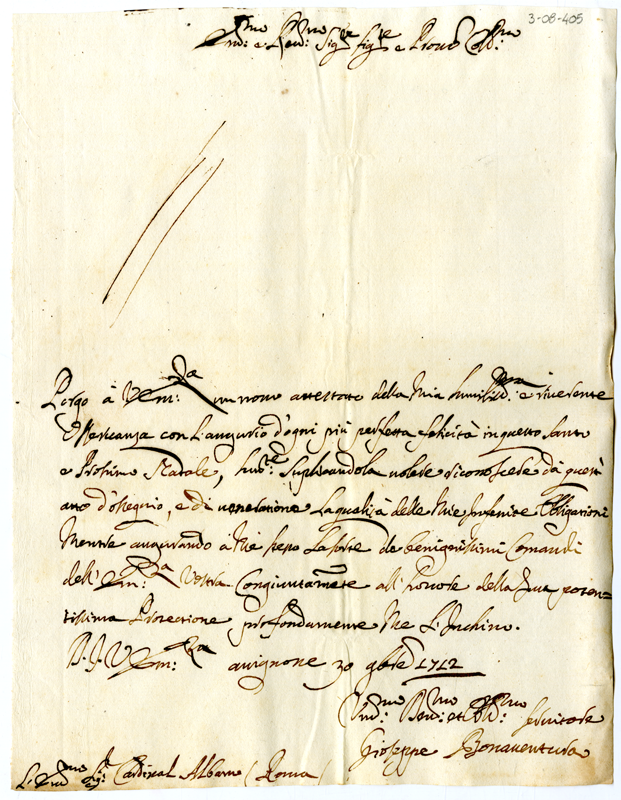 3-08-405
Em:mo e Rev:mo Sig:re Sig:re e Prone Col:mo
Porgo à V Em:za un nouo attestato della Mia humiliss:ma e riuerente
Osseruanza con L'augurio d'ogni più perfetta felicità in questo Santo
e Prossimo Natale, hum:te Suplicandola uolere riconoscere da quest'
atto d'ossequio, e di ueneratione La qualità delle Mie Obligationi
Mentre augurando à Me stesso La sorte de benignissimi Comandi
dell' Em:za Vostra Congiuntamẽte all' honore della Sua poten=
tissima Protectione profondamente Me L'Inchino.
D. V Em:za auignone 30 9bre 1712
Hum:mo Deuo:mo et Obl:mo seruitore
Gioseppe Bonauentura
S.r Cardinal Albano (Roma)